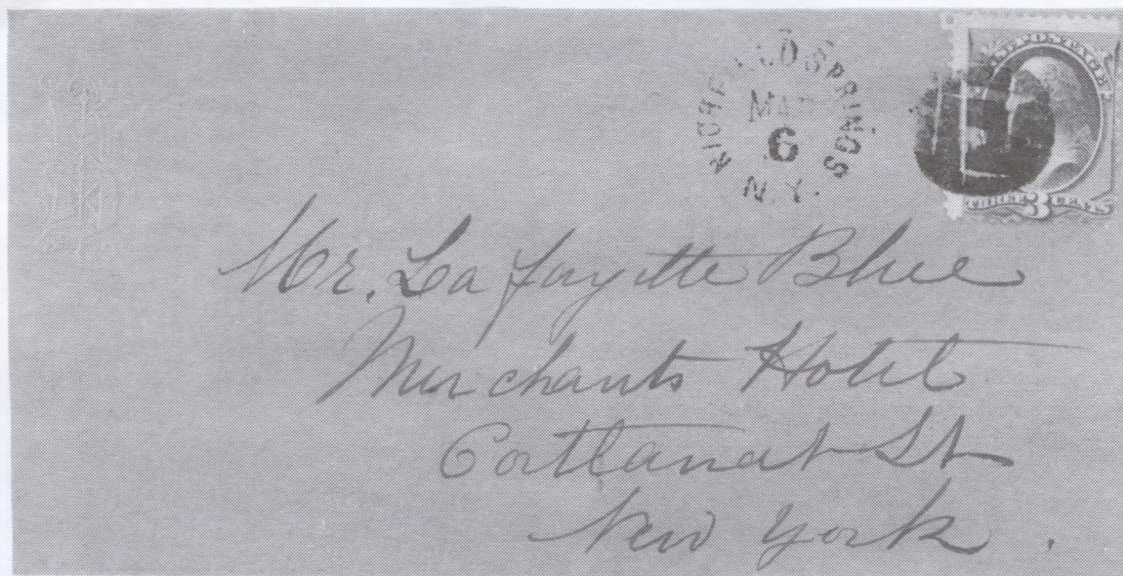 RICHFIELD SPRINGS
MAR
6
N.Y.
U.S. POSTAGE
THREE 3 CENTS
Mr. La fayette Blue
Merchants Hotel
Cortlandt St
New York.